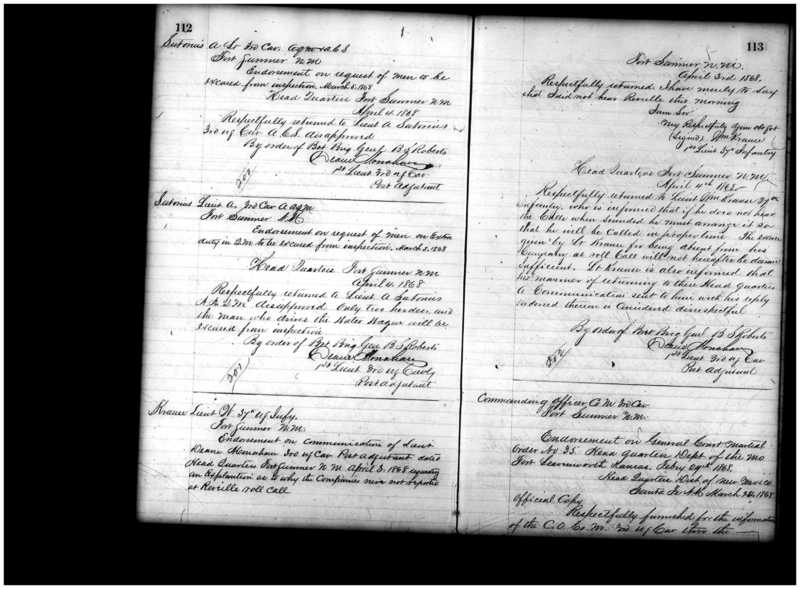 112
Sutorius A Lt 3rd Cav. aqm & A.C.S
Fort Sumner N M
Endorsement on request of men to be
excused from inspection. March 5. 1868
Head Quarters Fort Sumner N M
April 4. 1868
Respectfully returned to Lieut A Sutorius
3rd U S Cav A.C.S. disapproved
By order of Bvt Brig Genl B. S. Roberts
Deane Monahan
1st Lieut 3rd U S Cav
Post Adjutant
Sutorius Lieut A. 3rd Cav A aqm
Fort Sumner N. M
Endorsement on request of men on Extra
duty in Q.M. to be excused from inspection. March 5. 1868
Head Quarters Fort Sumner N M
April 4. 1868
Respectfully returned to Lieut. A Sutorius
A.A.Q.M Disapproved Only two herders, and
the man who drives the Water Wagon will be
excused from inspection
By order of Bvt Brig Gen B. S. Roberts
Deane Monahan
1st Lieut 3rd U S Cavly
Post Adjutant
Krause Lieut W. 37th U S Infty.
Fort Sumner N. M.
Endorsement on communication of Lieut
Deane Monahan 3rd U S Cav Post adjutant dated
Head Quarters Fort Sumner N M April 3. 1868 requesting
an Explanation as to why the Companies were not reported
at Reveille roll Call
113
Fort Sumner N. M.
April 3rd 1868.
Respectfully returned I have merely to say
that I did not hear Reveille this morning
I am Sir
Very Respectfully Your obt Svt
(Signed) Wm Krause
1st Lieut 37th Infantry
Head Quarters Fort Sumner N. M.
April 4th 1868
Respectfully returned to Lieut Wm Krause 37th
Infantry, who is informed that if he does not hear
the Calls when sounded he must arrange it so
that he will be Called in proper time. The excuse
given by Lt Krause for being absent from his
Company at roll Call will not hereafter be deemed
sufficient. Lt Krause is also informed that
his manner of returning to these Head Quarters
a Communication sent to him with his reply
endorsed thereon is Considered disrespectful
By order of Bvt Brig Genl B S Roberts
Deane Monahan
1st Lieut 3rd U S Cav
Post Adjutant
Commanding Officer, Co M 3rd Cav
Fort Sumner N. M.
Endorsement on General Court Martial
Order No 25. Head Quarters Dept. of the Mo
Fort Leavenworth Kansas. Feby 29th 1868.
Head Quarters Dist. of New Mexico
Santa Fe N. M. March 1868
Official Copy
Respectfully furnished for the information
of the C.O. Co. M. 3rd U S Cav thro the